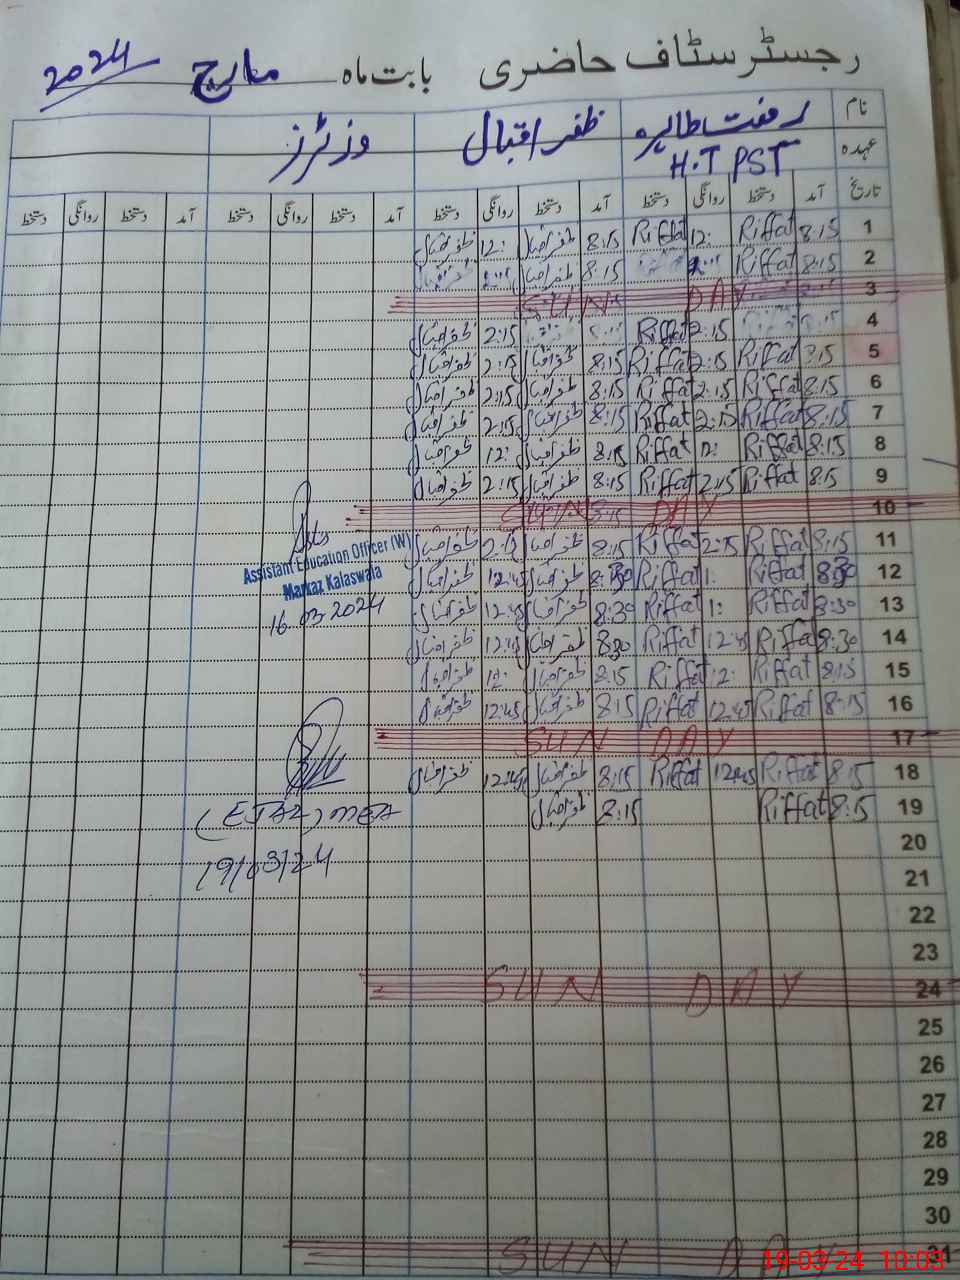 رجسٹر سٹاف حاضری بابت ماہ مارچ 2024
نام رفعت طاہرہ ظفر اقبال وزٹرز
عہدہ H.T PST
تاریخ آمد دستخط روانگی دستخط آمد دستخط روانگی دستخط آمد دستخط روانگی دستخط آمد دستخط روانگی دستخط
1 8:15 Riffat 12: Riffat 8:15 ظفر اقبال 12: ظفر اقبال
2 8:15 Riffat 8:15 ظفر اقبال
3 SUN DAY
4 Riffat 2:15 ظفر اقبال 2:15
5 8:15 Riffat 2:15 Riffat 8:15 ظفر اقبال 2:15 ظفر اقبال
6 8:15 Riffat 2:15 Riffat 8:15 ظفر اقبال 2:15 ظفر اقبال
7 8:15 Riffat 2:15 Riffat 8:15 ظفر اقبال 2:15 ظفر اقبال
8 8:15 Riffat 12: Riffat 8:15 ظفر اقبال 12: ظفر اقبال
9 8:15 Riffat 2:15 Riffat 8:15 ظفر اقبال 2:15 ظفر اقبال
10 SUN DAY
11 8:15 Riffat 2:15 Riffat 8:15 ظفر اقبال 2:15 ظفر اقبال
Assistant Education Officer (W)
Markaz Kalaswala
16.03.2024
12 8:30 Riffat 1: Riffat 8:30 ظفر اقبال 12:45 ظفر اقبال
13 8:30 Riffat 1: Riffat 8:30 ظفر اقبال 12:45 ظفر اقبال
14 8:30 Riffat 12:45 Riffat 8:30 ظفر اقبال 12:45 ظفر اقبال
15 8:15 Riffat 12: Riffat 8:15 ظفر اقبال 12: ظفر اقبال
16 8:15 Riffat 12:45 Riffat 8:15 ظفر اقبال 12:45 ظفر اقبال
17 SUN DAY
18 8:15 Riffat 12:45 Riffat 8:15 ظفر اقبال 12:45 ظفر اقبال
19 8:15 Riffat 8:15 ظفر اقبال
(EJAZ) MEA
19/03/24
20
21
22
23
24 SUN DAY
25
26
27
28
29
30
31 SUN DAY
19-03-24 10:03